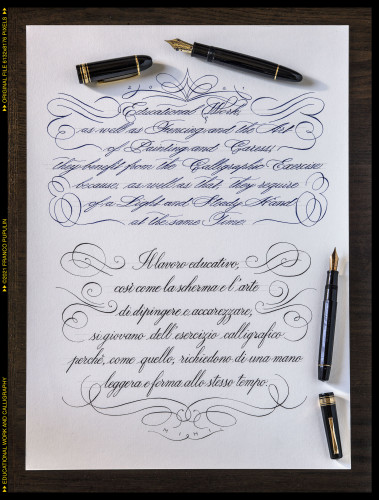 Educational Work,
as well as Fencing and the Art
of Painting and Caress,
they benefit from the Calligraphic Exercise
because, as well as that, they require
of a Light and Steady Hand
at the same Time.
Il lavoro educativo,
così come la scherma e l'arte
di dipingere e accarezzare,
si giovano dell'esercizio calligrafico
perché, come quello, richiedono di una mano
leggera e ferma allo stesso tempo.
EDUCATIONAL WORK AND CALLIGRAPHY
©2021 FRANCO PUPULIN